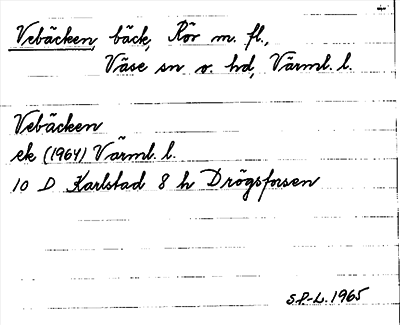 Vebäcken, bäck, Rör m. fl.,
Väse sn o. hd, Värml. l.
Vebäcken
ek (1964) Värml. l.
10 D Karlstad 8 h Drögsforsen
S.P-L. 1965